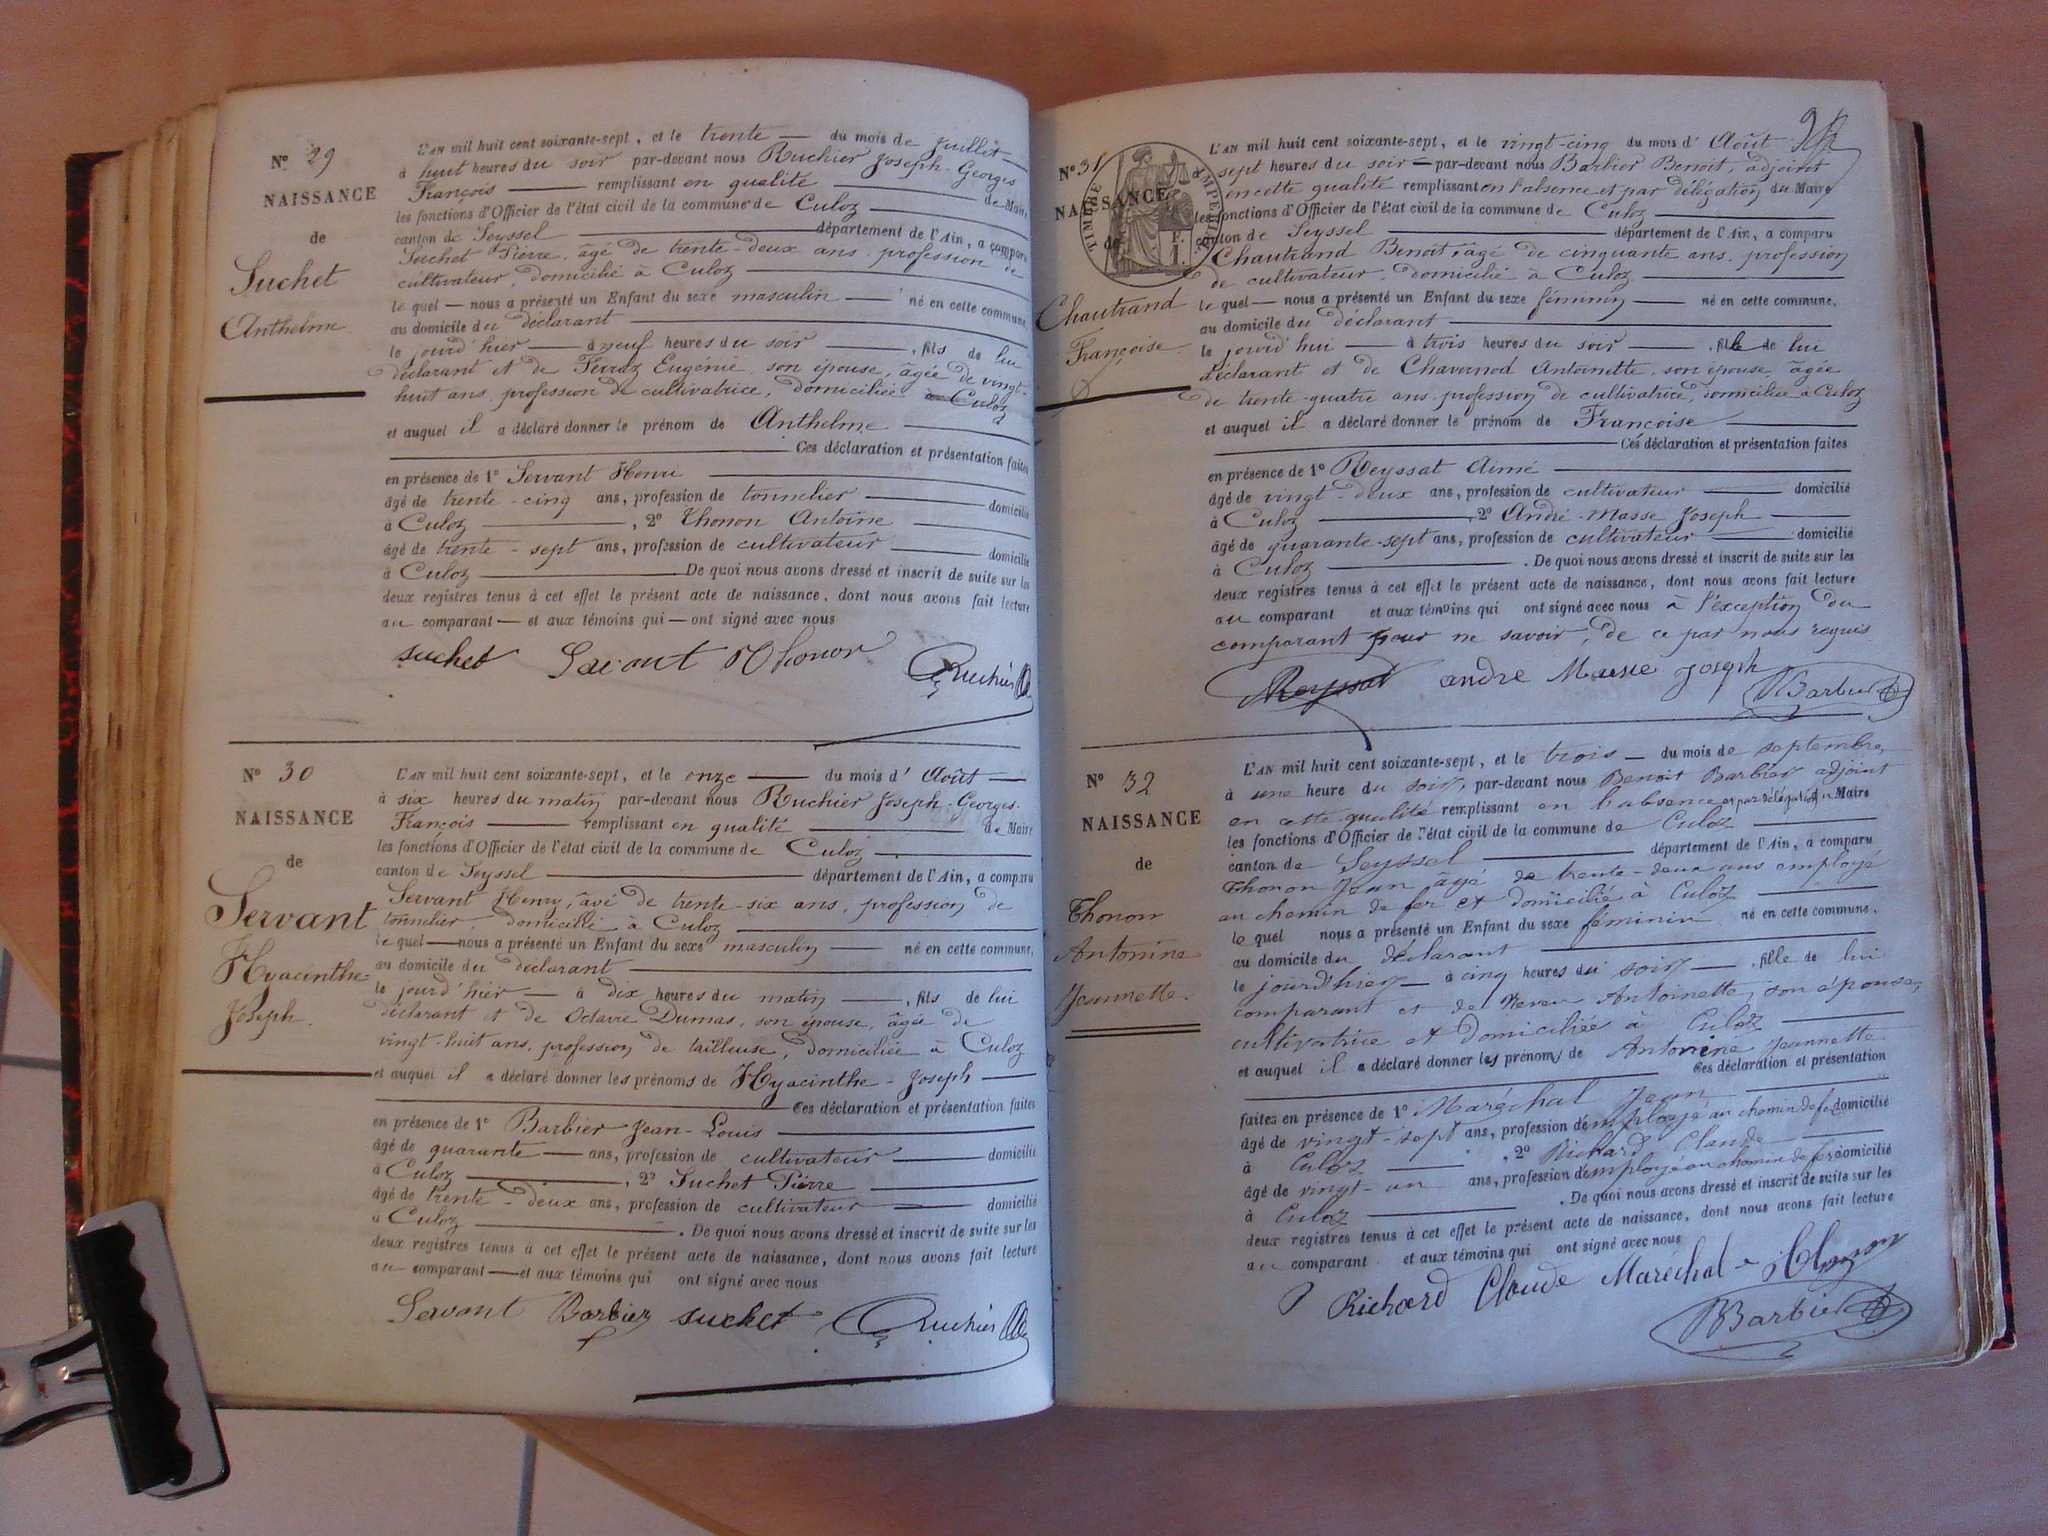 N° 29
NAISSANCE
de
Suchet
Anthelme
L'AN mil huit cent soixante-sept, et le trente — du mois de Juillet
à huit heures du soir par-devant nous Ruchier Joseph-Georges
François — remplissant en qualité — de Maire
les fonctions d'Officier de l'état civil de la commune de Culoz
canton de Seyssel — département de l'Ain, a comparu
Suchet Pierre, âgé de trente-deux ans, profession de
cultivateur, domicilié à Culoz
le quel — nous a présenté un Enfant du sexe masculin — né en cette commune,
au domicile du déclarant
le jourd'hier — à neuf heures du soir — , fils de lui
déclarant et de Ferraz Eugénie, son épouse, âgée de vingt-
huit ans, profession de cultivatrice, domiciliée à Culoz
et auquel il a déclaré donner le prénom de Anthelme
— Ces déclaration et présentation faites
en présence de 1° Servant Henri
âgé de trente-cinq ans, profession de tonnelier — domicilié
à Culoz — , 2° Thonon Antoine
âgé de trente-sept ans, profession de cultivateur — domicilié
à Culoz — De quoi nous avons dressé et inscrit de suite sur les
deux registres tenus à cet effet le présent acte de naissance, dont nous avons fait lecture
au comparant — et aux témoins qui — ont signé avec nous
suchet Servant Thonon Ruchier
N° 30
NAISSANCE
de
Servant
Hyacinthe-
Joseph
L'AN mil huit cent soixante-sept, et le onze — du mois d'Août —
à six heures du matin par-devant nous Ruchier Joseph-Georges-
François — remplissant en qualité — de Maire
les fonctions d'Officier de l'état civil de la commune de Culoz
canton de Seyssel — département de l'Ain, a comparu
Servant Henry, âgé de trente-six ans, profession de
tonnelier, domicilié à Culoz
le quel — nous a présenté un Enfant du sexe masculin — né en cette commune,
au domicile du déclarant
le jourd'hier — à dix heures du matin — , fils de lui
déclarant et de Octavie Dumas, son épouse, âgée de
vingt-huit ans, profession de tailleuse, domiciliée à Culoz
et auquel il a déclaré donner les prénoms de Hyacinthe-Joseph —
— Ces déclaration et présentation faites
en présence de 1° Barbier Jean-Louis
âgé de quarante — ans, profession de cultivateur — domicilié
à Culoz — , 2° Suchet Pierre
âgé de trente-deux ans, profession de cultivateur — domicilié
à Culoz — . De quoi nous avons dressé et inscrit de suite sur les
deux registres tenus à cet effet le présent acte de naissance, dont nous avons fait lecture
au comparant — et aux témoins qui ont signé avec nous
Servant Barbier suchet Ruchier
N° 31
NAISSANCE
de
Chautrand
Françoise
TIMBRE IMPERIAL
1 F.
L'AN mil huit cent soixante-sept, et le vingt-cinq du mois d'Août
à sept heures du soir — par-devant nous Barbier Benoit, adjoint
en cette qualité remplissant en l'absence et par délégation du Maire
les fonctions d'Officier de l'état civil de la commune de Culoz
canton de Seyssel — département de l'Ain, a comparu
Chautrand Benoit, âgé de cinquante ans, profession
de cultivateur, domicilié à Culoz
le quel — nous a présenté un Enfant du sexe féminin — né en cette commune,
au domicile du déclarant
le jourd'hui — à trois heures du soir — , fille de lui
déclarant et de Chavernod Antoinette, son épouse, âgée
de trente-quatre ans, profession de cultivatrice, domiciliée à Culoz
et auquel il a déclaré donner le prénom de Françoise
— Ces déclaration et présentation faites
en présence de 1° Reyssat Aimé
âgé de vingt-deux ans, profession de cultivateur — domicilié
à Culoz — , 2° André-Masse Joseph
âgé de quarante-sept ans, profession de cultivateur — domicilié
à Culoz — . De quoi nous avons dressé et inscrit de suite sur les
deux registres tenus à cet effet le présent acte de naissance, dont nous avons fait lecture
au comparant et aux témoins qui ont signé avec nous à l'exception du
comparant pour ne savoir, de ce par nous requis
Reyssat andre Masse Joseph Barbier
N° 32
NAISSANCE
de
Thonon
Antonine
Jeannette
L'AN mil huit cent soixante-sept, et le trois — du mois de septembre,
à une heure du soir, par-devant nous Benoit Barbier adjoint
en cette qualité remplissant en l'absence et par délégation du Maire
les fonctions d'Officier de l'état civil de la commune de Culoz
canton de Seyssel — département de l'Ain, a comparu
Thonon Jean âgé de trente-deux ans employé
au chemin de fer et domicilié à Culoz
le quel nous a présenté un Enfant du sexe féminin né en cette commune,
au domicile du déclarant
le jourd'hier — à cinq heures du soir — , fille de lui
comparant et de Antoinette, son épouse,
cultivatrice et domiciliée à Culoz
et auquel il a déclaré donner les prénoms de Antonine Jeannette
Ces déclaration et présentation
faites en présence de 1° Maréchal Jean
âgé de vingt-sept ans, profession d'employé au chemin de fer domicilié
à Culoz — , 2° Richard Claude
âgé de vingt-un ans, profession d'employé au chemin de fer domicilié
à Culoz — . De quoi nous avons dressé et inscrit de suite sur les
deux registres tenus à cet effet le présent acte de naissance, dont nous avons fait lecture
au comparant et aux témoins qui ont signé avec nous
Richard Claude Maréchal Thonon
Barbier